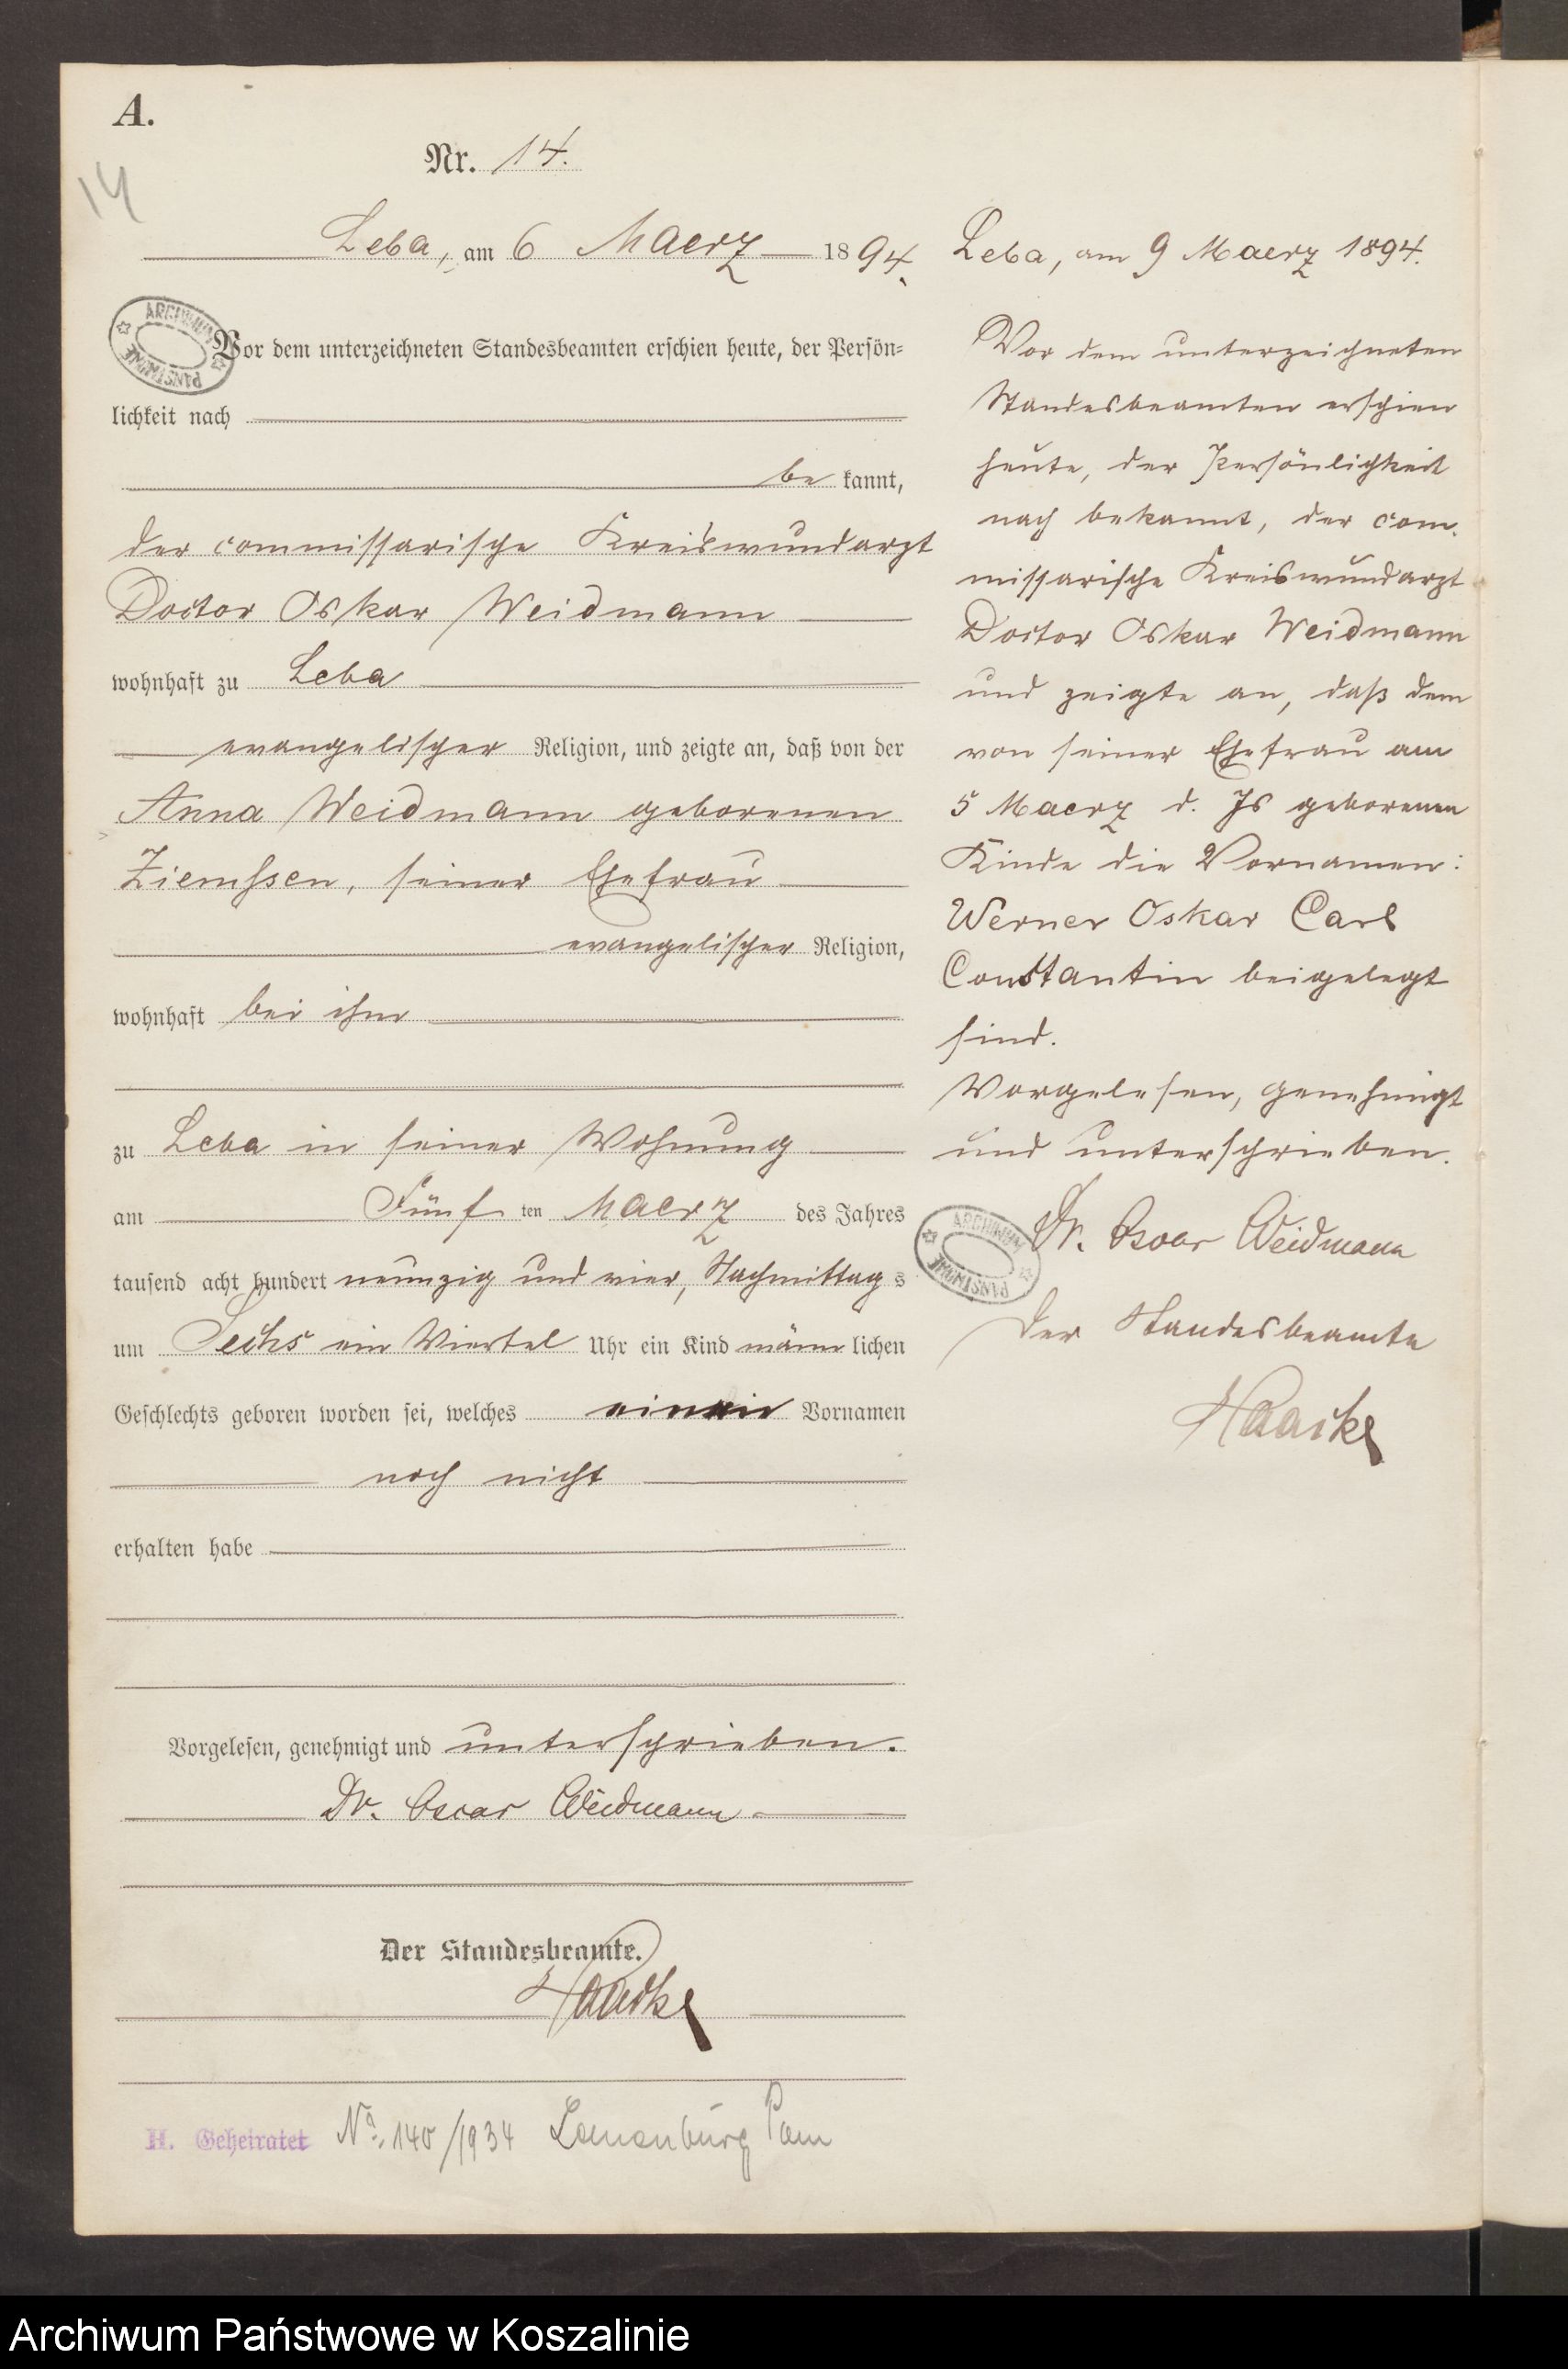 A.
14
Nr. 14.
Leba, am 6 Maerz 1894.
ARCHIWUM PAŃSTWOWE
Vor dem unterzeichneten Standesbeamten erschien heute, der Persön=
lichkeit nach
be kannt,
der commissarische Kreiswundarzt
Doctor Oskar Weidmann
wohnhaft zu Leba
evangelischer Religion, und zeigte an, daß von der
Anna Weidmann geborenen
Ziemssen, seiner Ehefrau
evangelischer Religion,
wohnhaft bei ihm
zu Leba in seiner Wohnung
am Fünf ten Maerz des Jahres
tausend acht hundert neunzig und vier, Nachmittag s
um Sechs ein Viertel Uhr ein Kind männ lichen
Geschlechts geboren worden sei, welches Vornamen
noch nicht
erhalten habe
Vorgelesen, genehmigt und unterschrieben.
Dr. Oscar Weidmann
Der Standesbeamte.
Haacke
H. Geheiratet No. 140/1934 Lauenburg Pom
Leba, am 9 Maerz 1894.
Vor dem unterzeichneten
Standesbeamten erschien
heute, der Persönlichkeit
nach bekannt, der com-
missarische Kreiswundarzt
Doctor Oskar Weidmann
und zeigte an, daß dem
von seiner Ehefrau am
5 Maerz d. Js geborenen
Kinde die Vornamen:
Werner Oskar Carl
Constantin beigelegt
sind.
Vorgelesen, genehmigt
und unterschrieben.
ARCHIWUM PAŃSTWOWE
Dr. Oscar Weidmann
Der Standesbeamte
Haacke
Archiwum Państwowe w Koszalinie